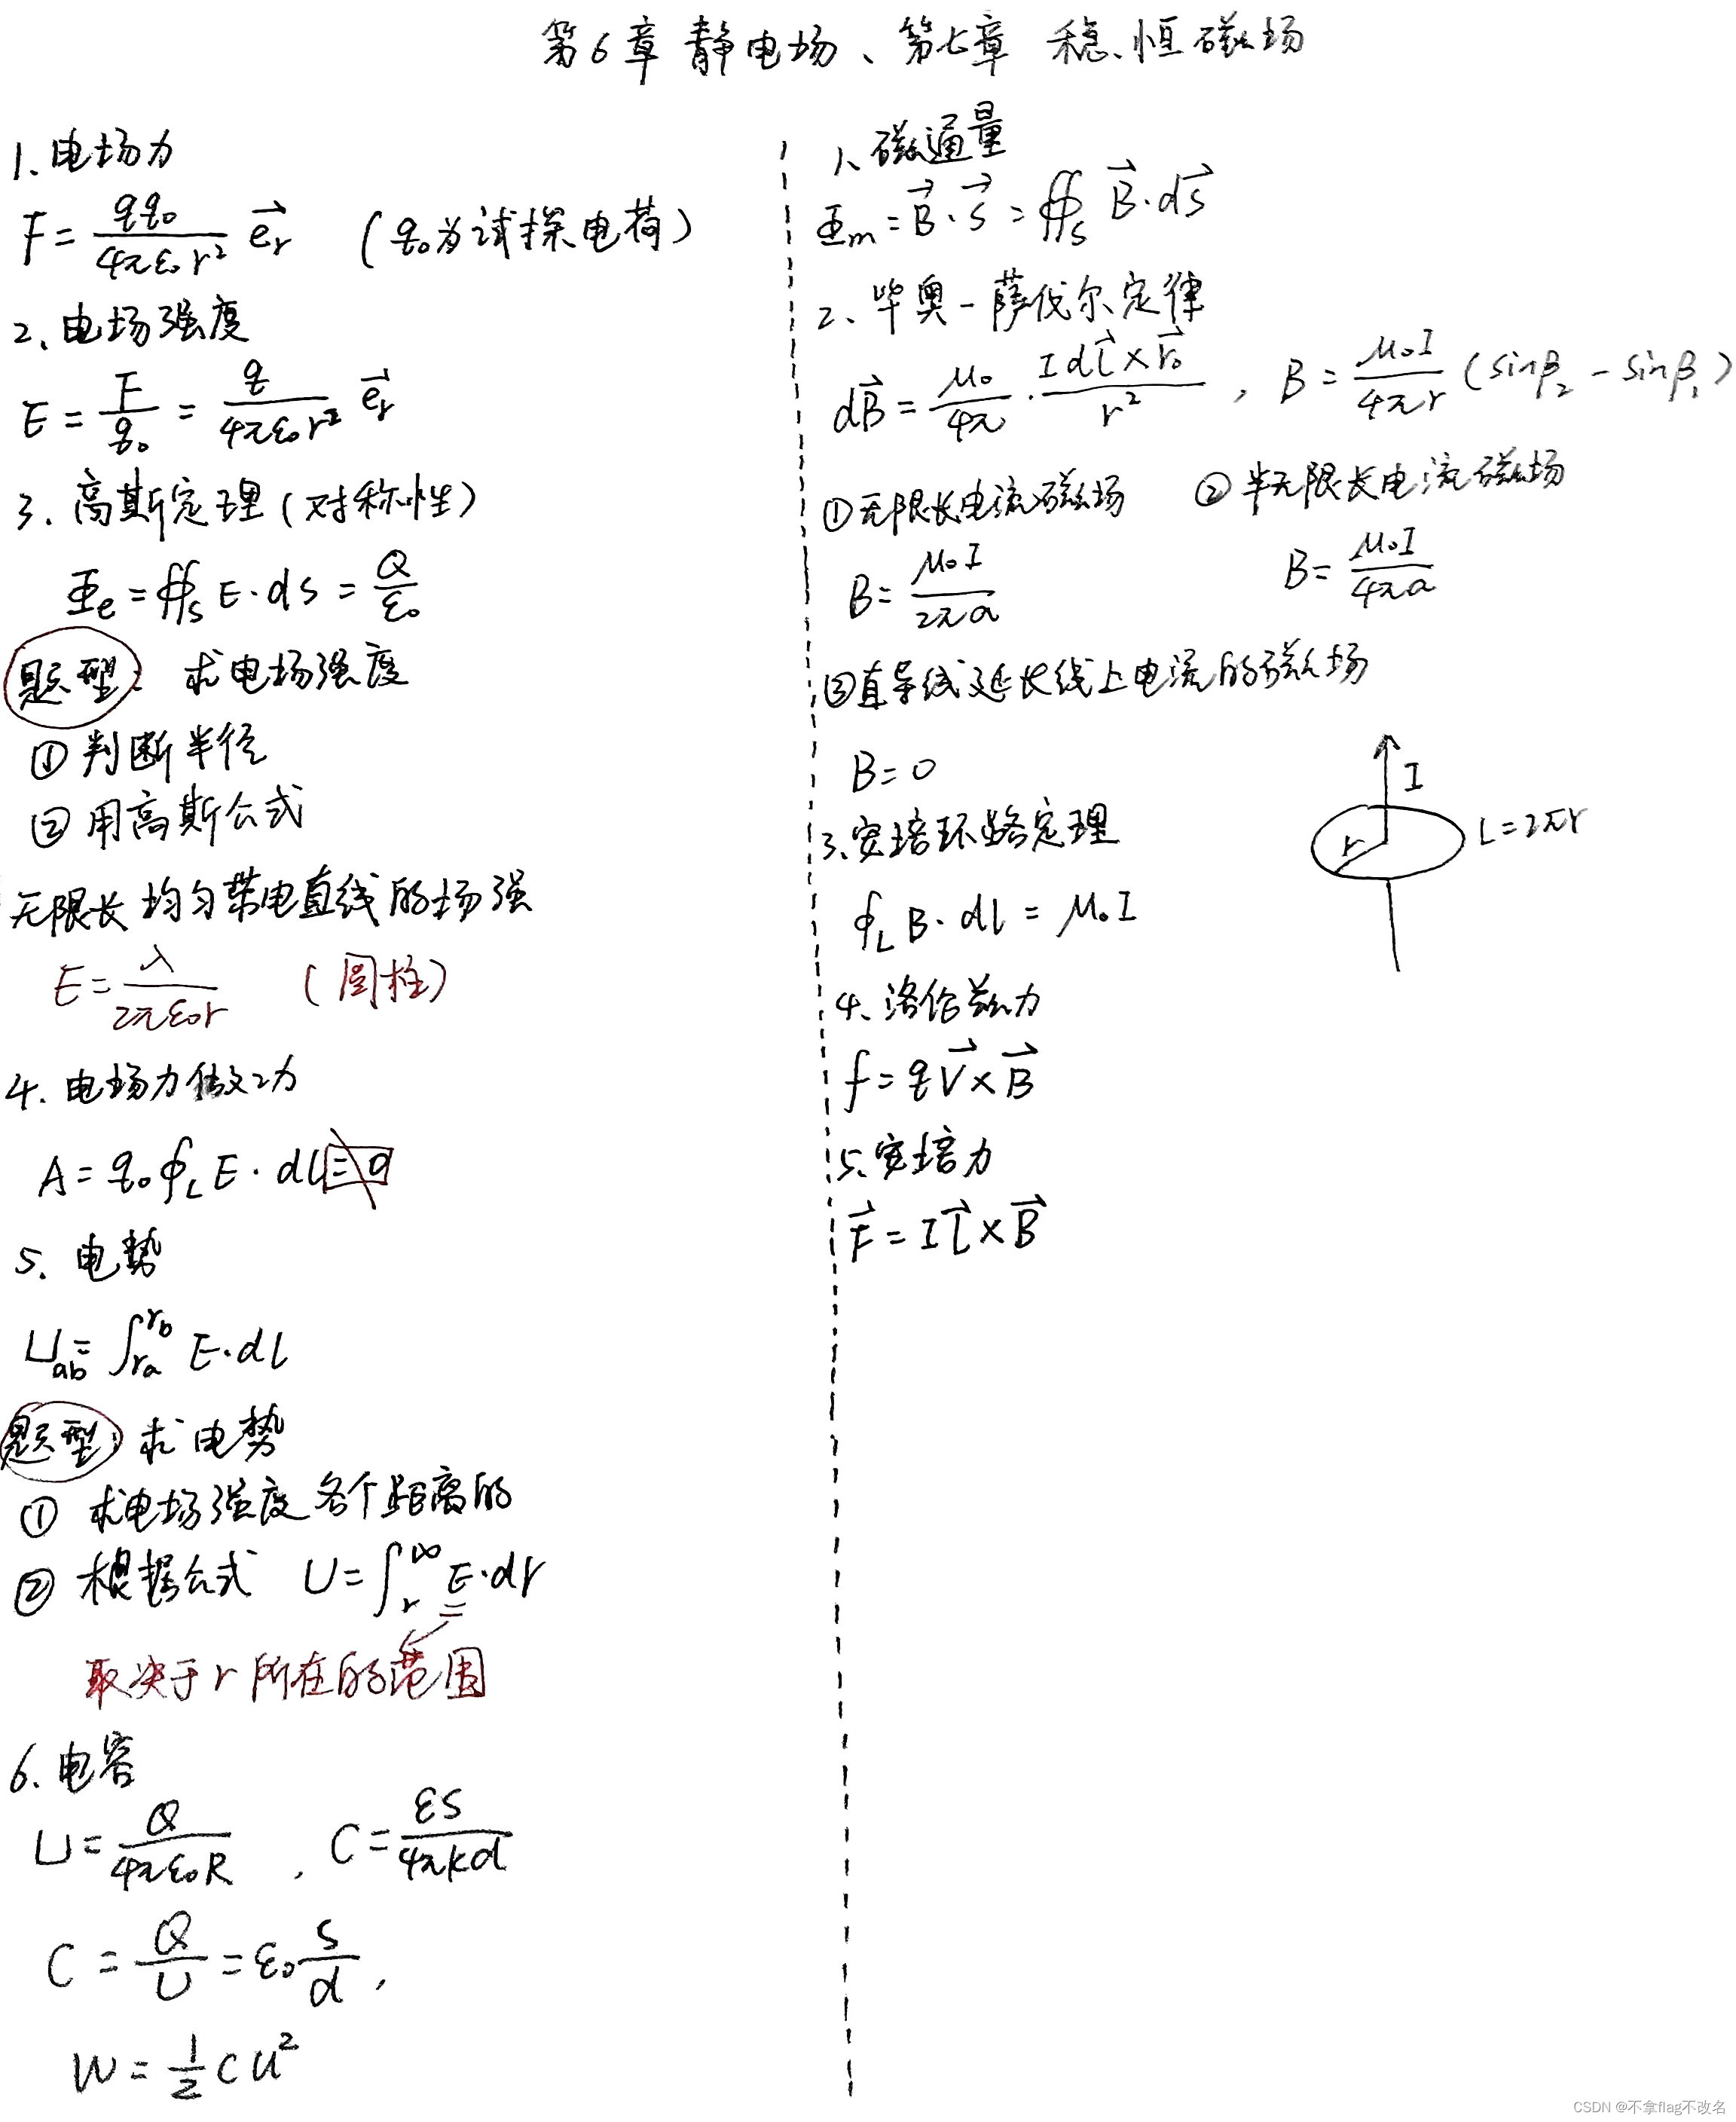 第6章 静电场、第七章 稳恒磁场
1. 电场力
F = qq₀/(4πε₀r²) e⃗ᵣ (q₀为试探电荷)
2. 电场强度
E = F/q₀ = q/(4πε₀r²) e⃗ᵣ
3. 高斯定理(对称性)
Φe = ∯s E·ds = Q/ε₀
题型: 求电场强度
① 判断半径
② 用高斯公式
无限长均匀带电直线的场强
E = λ/(2πε₀r) (圆柱)
4. 电场力做功
A = q₀∮L E·dl = 0
5. 电势
Uab = ∫ra^rb E·dl
题型: 求电势
① 求电场强度各个距离的
② 根据公式 U = ∫r^∞ E·dr
取决于r所在的范围
6. 电容
U = Q/(4πε₀R) , C = εS/(4πkd)
C = Q/U = ε₀ S/d ,
W = 1/2 CU²
1、磁通量
Φm = B⃗·S⃗ = ∯s B⃗·dS⃗
2、毕奥-萨伐尔定律
dB⃗ = μ₀/4π · Idl⃗×r⃗₀/r² , B = μ₀I/(4πr) (sinβ₂ - sinβ₁)
①无限长电流磁场 ②半无限长电流磁场
B = μ₀I/(2πa) B = μ₀I/(4πa)
③直导线延长线上电流的磁场
B = 0
I
r
L = 2πr
3、安培环路定理
∮L B·dl = μ₀I
4、洛伦兹力
f = qV⃗×B⃗
5、安培力
F⃗ = Il⃗×B⃗
CSDN @不拿flag不改名